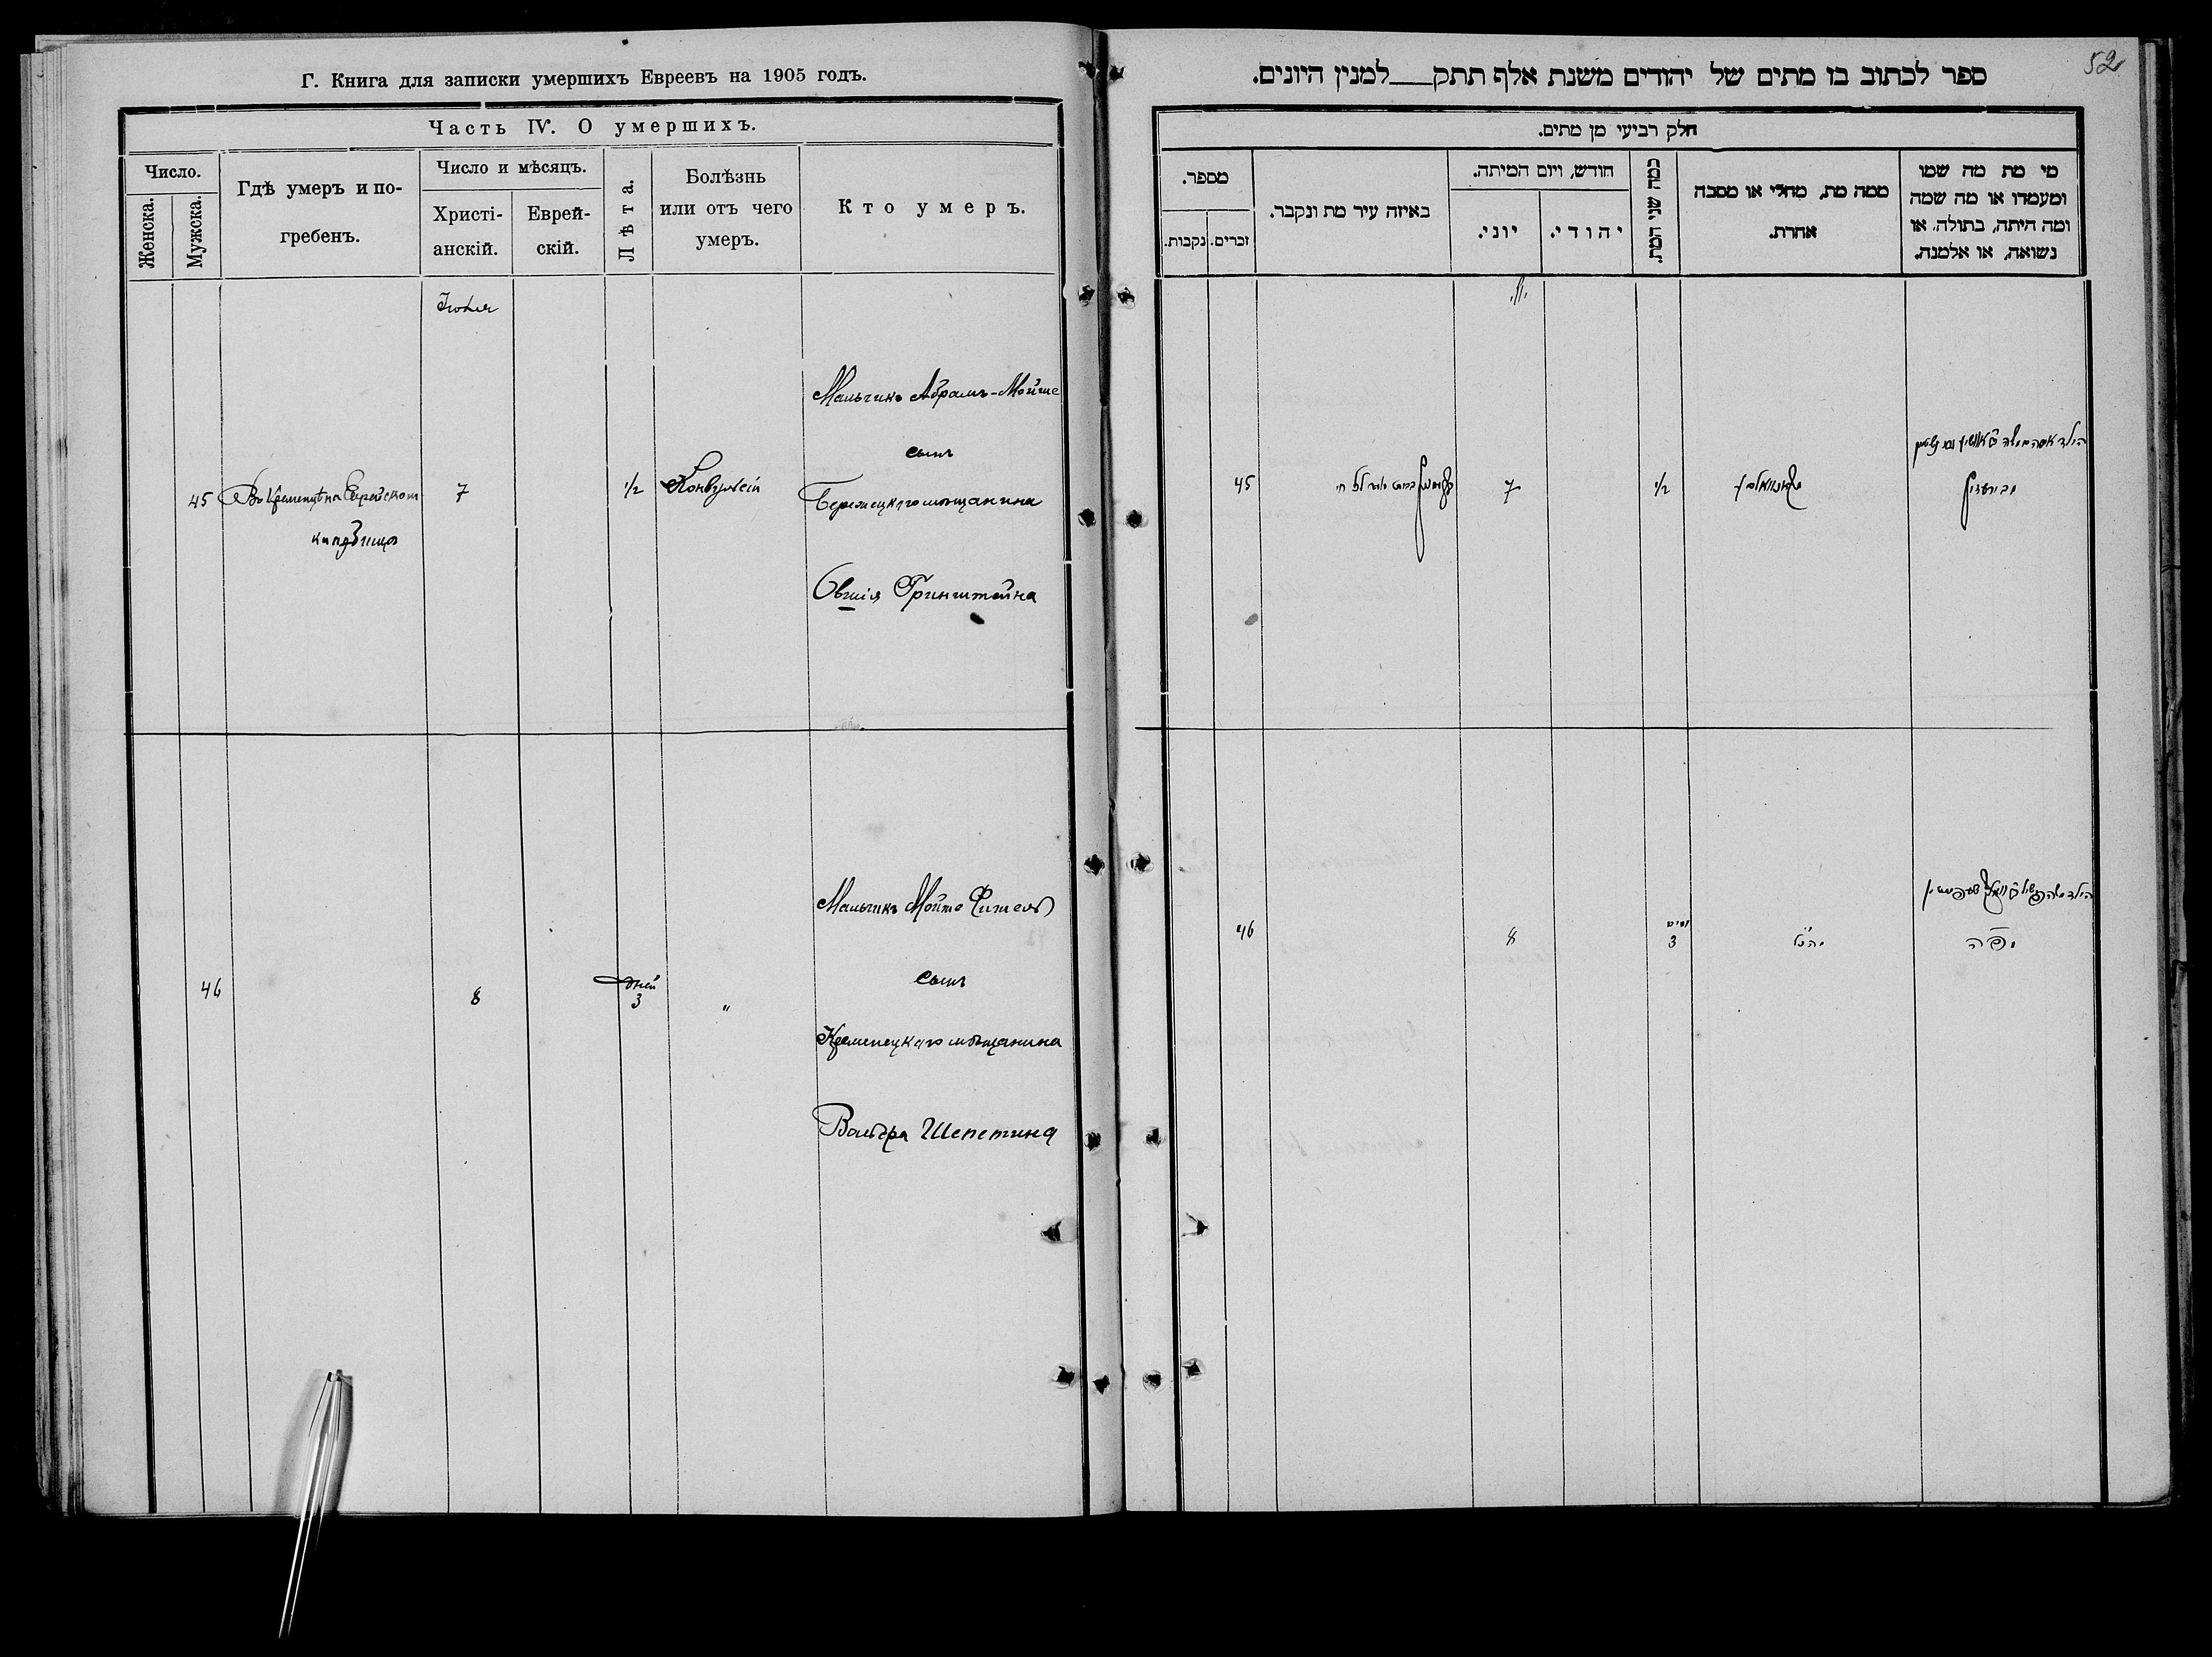 Г. Книга для записки умершихъ Евреевъ на 1905 годъ.
Часть IV. О умершихъ.
Число.
Женска.
Мужска.
Гдѣ умеръ и по-
гребенъ.
Число и мѣсяцъ.
Христі-
анскій.
Еврей-
скій.
Лѣта.
Болѣзнь
или отъ чего
умеръ.
Кто умеръ.
Іюля
45
Въ Кременцѣ на Еврейском
кладбищѣ
7
1/2
Конвульсій
Мальчикъ Абрамъ-Мойше
сынъ
Бережецкаго мѣщанина
Овшія Гринштейна
46
8
дней
3
"
Мальчикъ Мойше Фишель
сынъ
Кременецкаго мѣщанина
Вольфа Шепетина
52
ספר לכתוב בו מתים של יהודים משנת אלף תתק למנין היונים.
חלק רביעי מן מתים.
מספר.
נקבות.
זכרים.
באיזה עיר מת ונקבר.
חודש, ויום המיתה.
יוני.
יהודי.
כמה שני המת.
ממה מת, מחלי או מסבה
אחרת.
מי מת מה שמו
ומעמדו או מה שמה
ומה היתה, בתולה, או
נשואה, או אלמנה.
יולי
45
7
1/2
46
8
ימים
3
הילד משה פישל